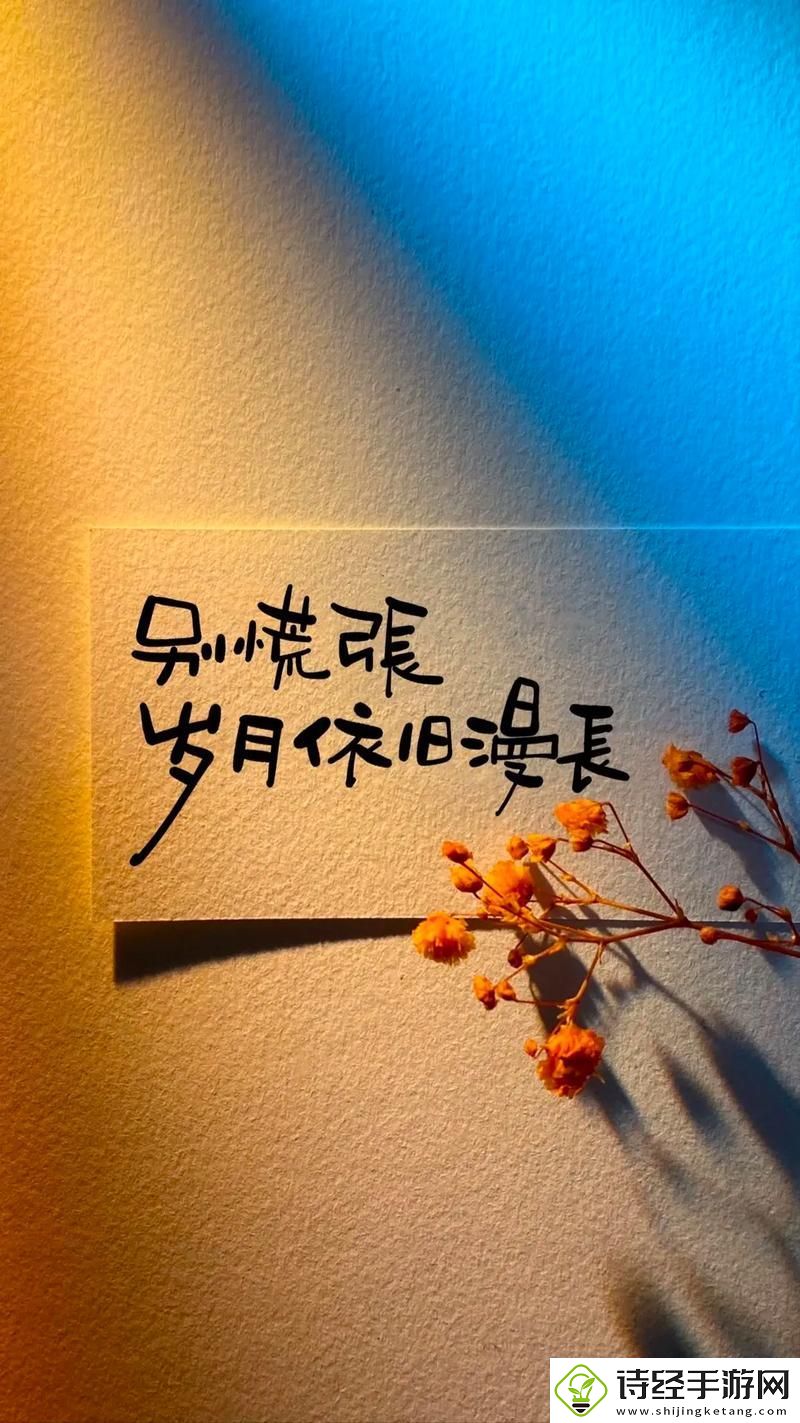 别慌張
岁月依旧漫長
诗经手游网
www.shijingketang.com